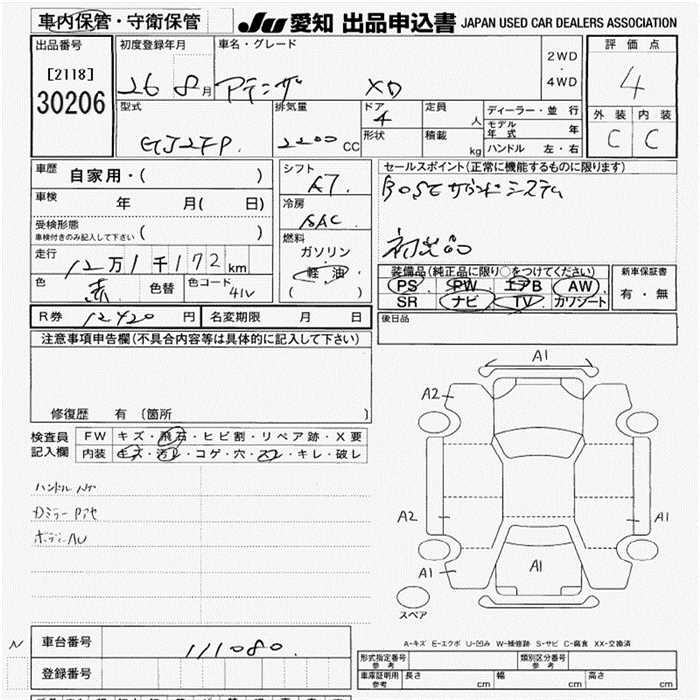 車内保管・守衛保管
JU 愛知 出品申込書 JAPAN USED CAR DEALERS ASSOCIATION
出品番号
[2118]
30206
初度登録年月
26 8月
車名・グレード
アテンザ XD
2WD
・
4WD
評価点
4
外装 内装
C C
型式
GJ2FP
排気量
2200 CC
ドア
4
形状
定員
人
積載
kg
ディーラー・並行
モデル年式 年
ハンドル 左・右
車歴
自家用・( )
車検
年 月( 日)
受検形態
車検付きのみ記入して下さい ( )
走行
12万1千172km
色
赤
色替
色コード
41V
シフト
A7
冷房
AAC
燃料
ガソリン
軽油
( )
セールスポイント(正常に機能するものに限ります)
BOSEサウンドシステム
装備品(純正品に限り○をつけてください)
PS PW エアB AW
SR ナビ TV カワシート
新車保証書
有・無
R券 12420円
名変期限 月 日
後日品
注意事項申告欄(不具合内容等は具体的に記入して下さい)
修復歴 有 〔箇所 〕
検査員
記入欄
FW キズ・飛石・ヒビ割・リペア跡・X要
内装 キズ・汚レ・コゲ・穴・スレ・キレ・破レ
ハンドルスレ
Dミラーアセ
ボディAU
A1
A2
A2
A1
A1
A1
スペア
A-キズ E-エクボ U-凹み W-補修跡 S-サビ C-腐食 XX-交換済
N
車台番号
111080
登録番号
形式指定番号
参考
類別区分番号
参考
車庫証明用
参考
長さ cm
幅 cm
高さ cm